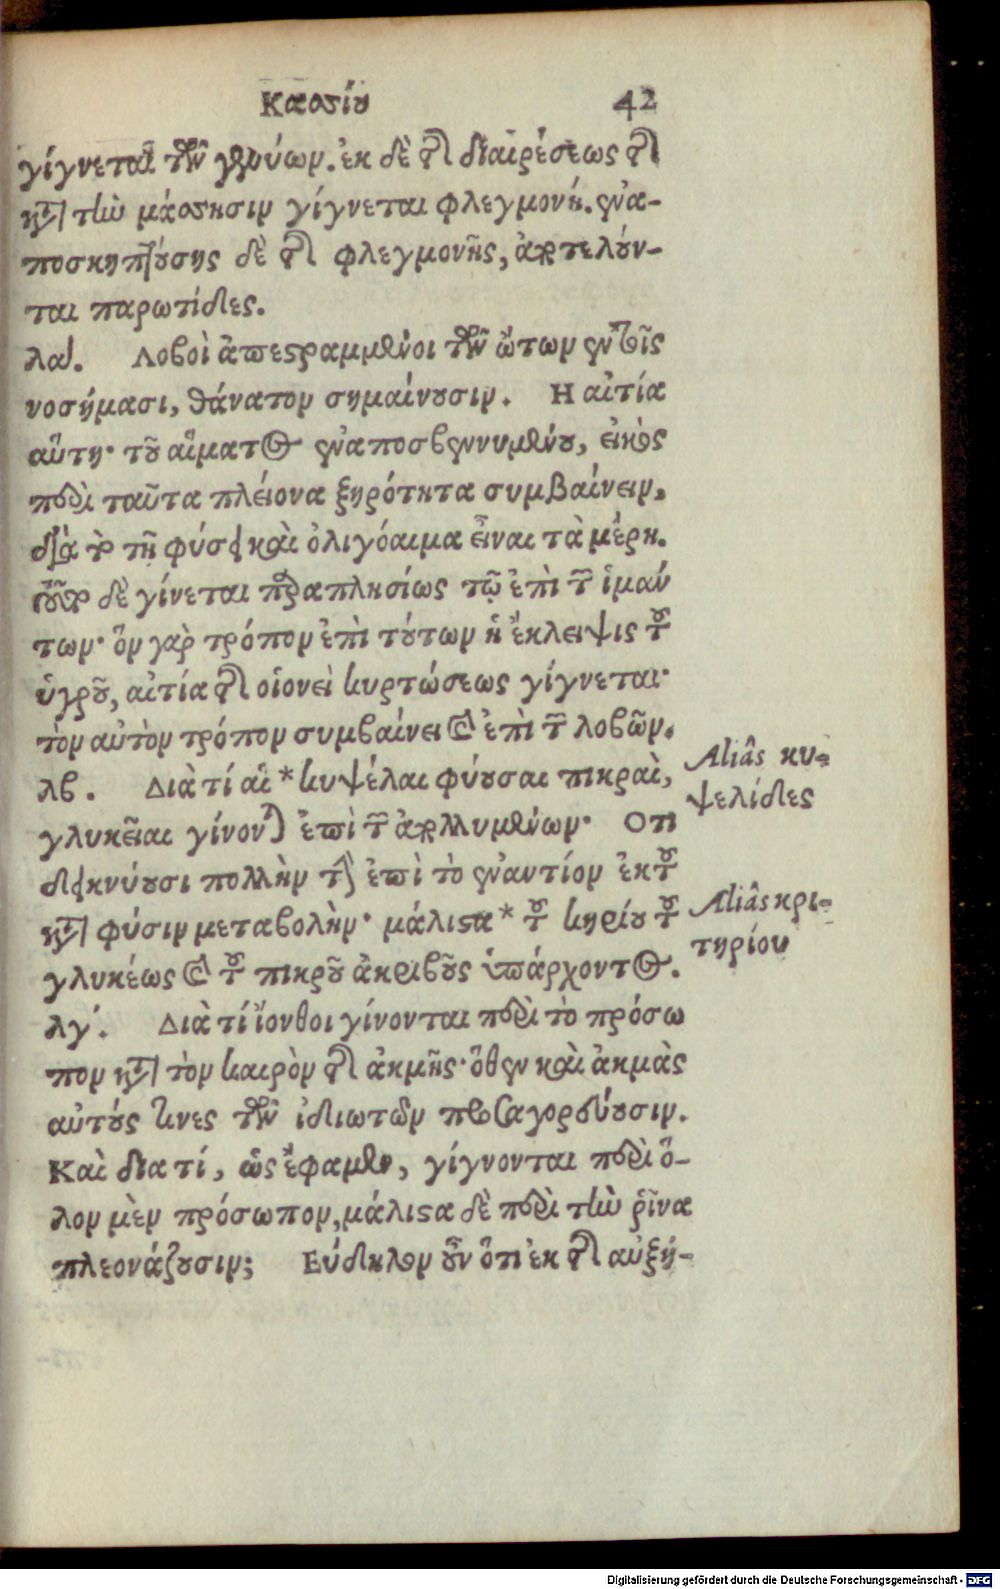 Κασσίου 42
γίγνεται τῶν γενύων. ἐκ δὲ τῆς διαιρέσεως τῆς
κατὰ τὴν μάσησιν γίγνεται φλεγμονή. ἐνα-
ποσκηπτούσης δὲ τῆς φλεγμονῆς, ἀποτελοῦν-
ται παρωτίδες.
λα´. Λοβοὶ ἀπεστραμμένοι τῶν ὤτων ἐν τοῖς
νοσήμασι, θάνατον σημαίνουσιν. Η αἰτία
αὕτη· τοῦ αἵματος ἐναποσβεννυμένου, εἰκὸς
περὶ ταῦτα πλείονα ξηρότητα συμβαίνειν,
διὰ τὸ τῇ φύσει καὶ ὀλιγόαιμα εἶναι τὰ μέρη.
τοῦτο δὲ γίνεται παραπλησίως τῷ ἐπὶ τῶν ἱμάν
των· ὃν γὰρ τρόπον ἐπὶ τούτων ἡ ἔκλειψις τοῦ
ὑγροῦ, αἰτία τῆς οἱονεὶ κυρτώσεως γίγνεται·
τὸν αὐτὸν τρόπον συμβαίνει καὶ ἐπὶ τῶν λοβῶν.
λβ. Διὰ τί αἱ * κυψέλαι φύουσαι πικραὶ,
γλυκεῖαι γίνονται ἐπὶ τῶν ἀπολλυμένων· Οτι
δεικνύουσι πολλὴν τὴν ἐπὶ τὸ ἐναντίον ἐκ τοῦ
κατὰ φύσιν μεταβολὴν· μάλιστα * τοῦ κηρίου τοῦ
γλυκέως καὶ τοῦ πικροῦ ἀκριβοῦς ὑπάρχοντος.
λγ´. Διὰ τί ἴονθοι γίνονται περὶ τὸ πρόσω
πον κατὰ τὸν καιρὸν τῆς ἀκμῆς· ὅθεν καὶ ἀκμὰς
αὐτούς τινες τῶν ἰδιωτῶν προσαγορεύουσιν.
Καὶ διὰ τί, ὡς ἔφαμεν, γίγνονται περὶ ὅ-
λον μὲν πρόσωπον, μάλιστα δὲ περὶ τὴν ῥῖνα
πλεονάζουσιν; Εὔδηλον οὖν ὅτι ἐκ τῆς αὐξή-
Aliâs κυ-
ψελίδες
Aliâs κρι-
τηρίου
Digitalisierung gefördert durch die Deutsche Forschungsgemeinschaft - DFG